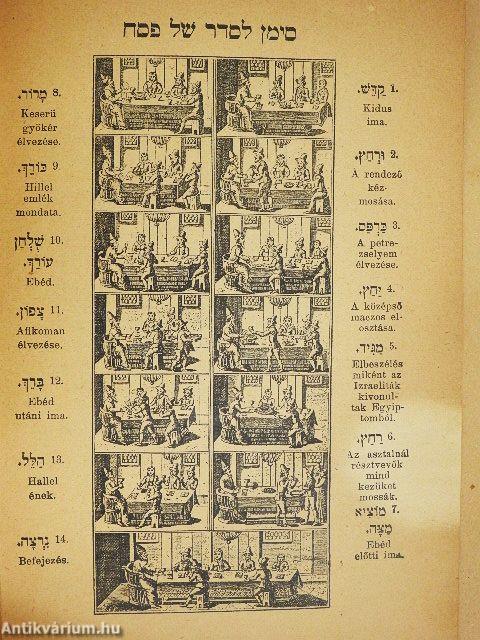 סימן לסדר של פסח
1. קַדֵּשׁ.
Kidus
ima.
2. וּרְחַץ.
A rendező
kéz-
mosása.
3. כַּרְפַּס.
A petre-
zselyem
élvezése.
4. יַחַץ.
A középső
maczos el-
osztása.
5. מַגִּיד.
Elbeszélés
miként az
Izraeliták
kivonul-
tak Egyip-
tomból.
6. רַחַץ.
Az asztalnál
résztvevők
mind
kezüket
mossák.
7. מוֹצִיא
מַצָּה.
Ebéd
előtti ima.
8. מָרוֹר.
Keserü
gyökér
élvezése.
9. כּוֹרֵךְ.
Hillel
emlék
mondata.
10. שֻׁלְחָן
עוֹרֵךְ.
Ebéd.
11. צָפוּן.
Afikoman
élvezése.
12. בָּרֵךְ.
Ebéd
utáni ima.
13. הַלֵּל.
Hallel
ének.
14. נִרְצָה.
Befejezés.
Antikvárium.hu